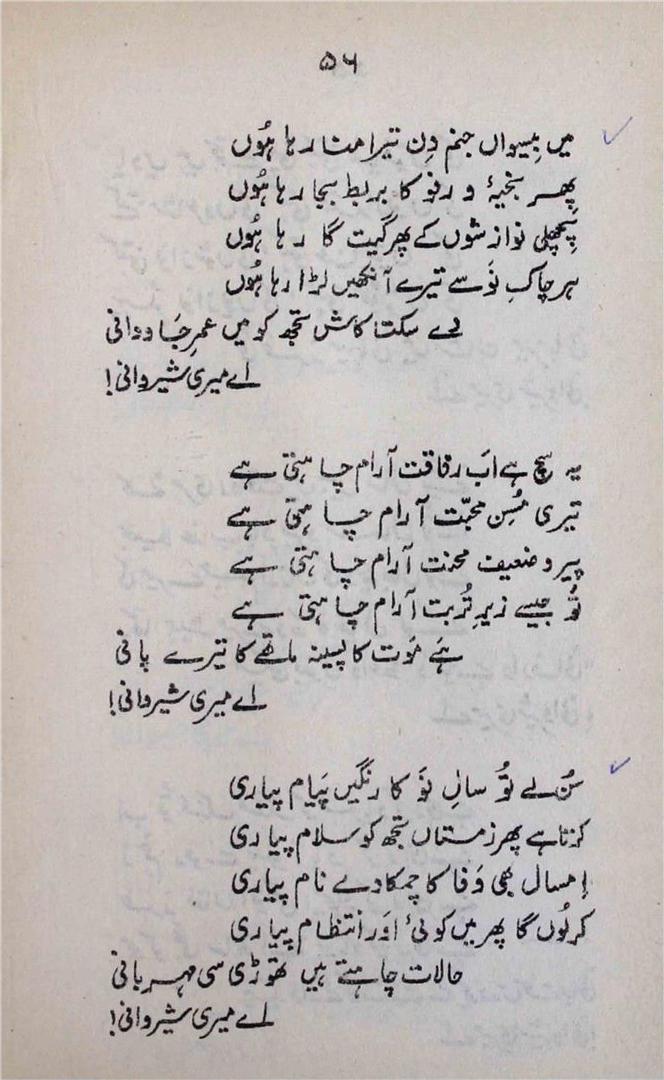 ۵۶
میں بِیسواں جنم دِن تیرا منا رہا ہُوں
پھر بخیۂ و رفو کا بربط بجا رہا ہُوں
پچھلی نوازشوں کے پھر گیت گا رہا ہُوں
ہر چاکِ نَو سے تیرے آنکھیں لڑا رہا ہُوں
لے سکتا کاش تجھ کو میں عمرِ جَاودانی
اے میری شیروانی!
یہ سچ ہے اَب رفاقت آرام چاہتی ہے
تیری مُسِن محبّت آرام چاہتی ہے
پیر و ضعیف محنت آرام چاہتی ہے
تُو جیسے زیرِ تُربت آرام چاہتی ہے
ہَے مَوت کا پسینہ ماتھے کا تیرے پانی
اے میری شیروانی!
سُن لے تُو سالِ نَو کا رنگیں پَیام پیاری
کرتا ہے پھر زمستاں تجھ کو سلام پیاری
اِمسال بھی وَفا کا چمکا دے نام پیاری
کر لُوں گا پھر میں کوئی اَور انتظام پیاری
حالات چاہتے ہیں تھوڑی سی مہربانی
اے میری شیروانی!